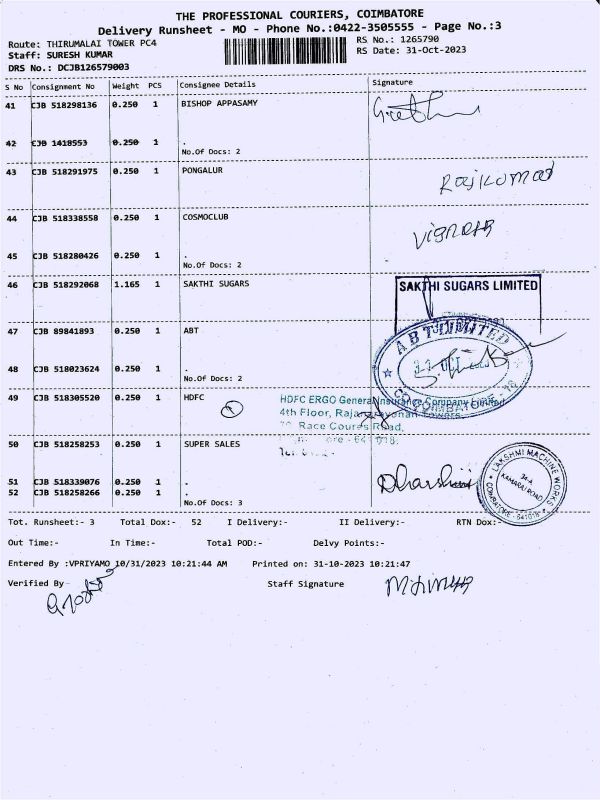 THE PROFESSIONAL COURIERS, COIMBATORE
Delivery Runsheet - MO - Phone No.:0422-3505555 - Page No.:3
Route: THIRUMALAI TOWER PC4 RS No.: 1265790
Staff: SURESH KUMAR RS Date: 31-Oct-2023
DRS No.: DCJB126579003
S No Consignment No Weight PCS Consignee Details Signature
41 CJB 518298136 0.250 1 BISHOP APPASAMY
42 CJB 1418553 0.250 1 .
No.Of Docs: 2
43 CJB 518291975 0.250 1 PONGALUR
Rajkumar
44 CJB 518338558 0.250 1 COSMOCLUB
Vignesh
45 CJB 518280426 0.250 1 .
No.Of Docs: 2
46 CJB 518292068 1.165 1 SAKTHI SUGARS SAKTHI SUGARS LIMITED
47 CJB 89841893 0.250 1 ABT A B T LIMITED
48 CJB 518023624 0.250 1 .
No.Of Docs: 2
49 CJB 518305520 0.250 1 HDFC HDFC ERGO General Insurance Company Limited
4th Floor,
Race Coures Road,
50 CJB 518258253 0.250 1 SUPER SALES
LAKSHMI MACHINE WORKS
34-A
KAMARAJ ROAD
COIMBATORE - 641018
51 CJB 518339076 0.250 1 . Dharshini
52 CJB 518258266 0.250 1 .
No.Of Docs: 3
Tot. Runsheet:- 3 Total Dox:- 52 I Delivery:- II Delivery:- RTN Dox:-
Out Time:- In Time:- Total POD:- Delvy Points:-
Entered By :VPRIYAMO 10/31/2023 10:21:44 AM Printed on: 31-10-2023 10:21:47
Verified By Staff Signature